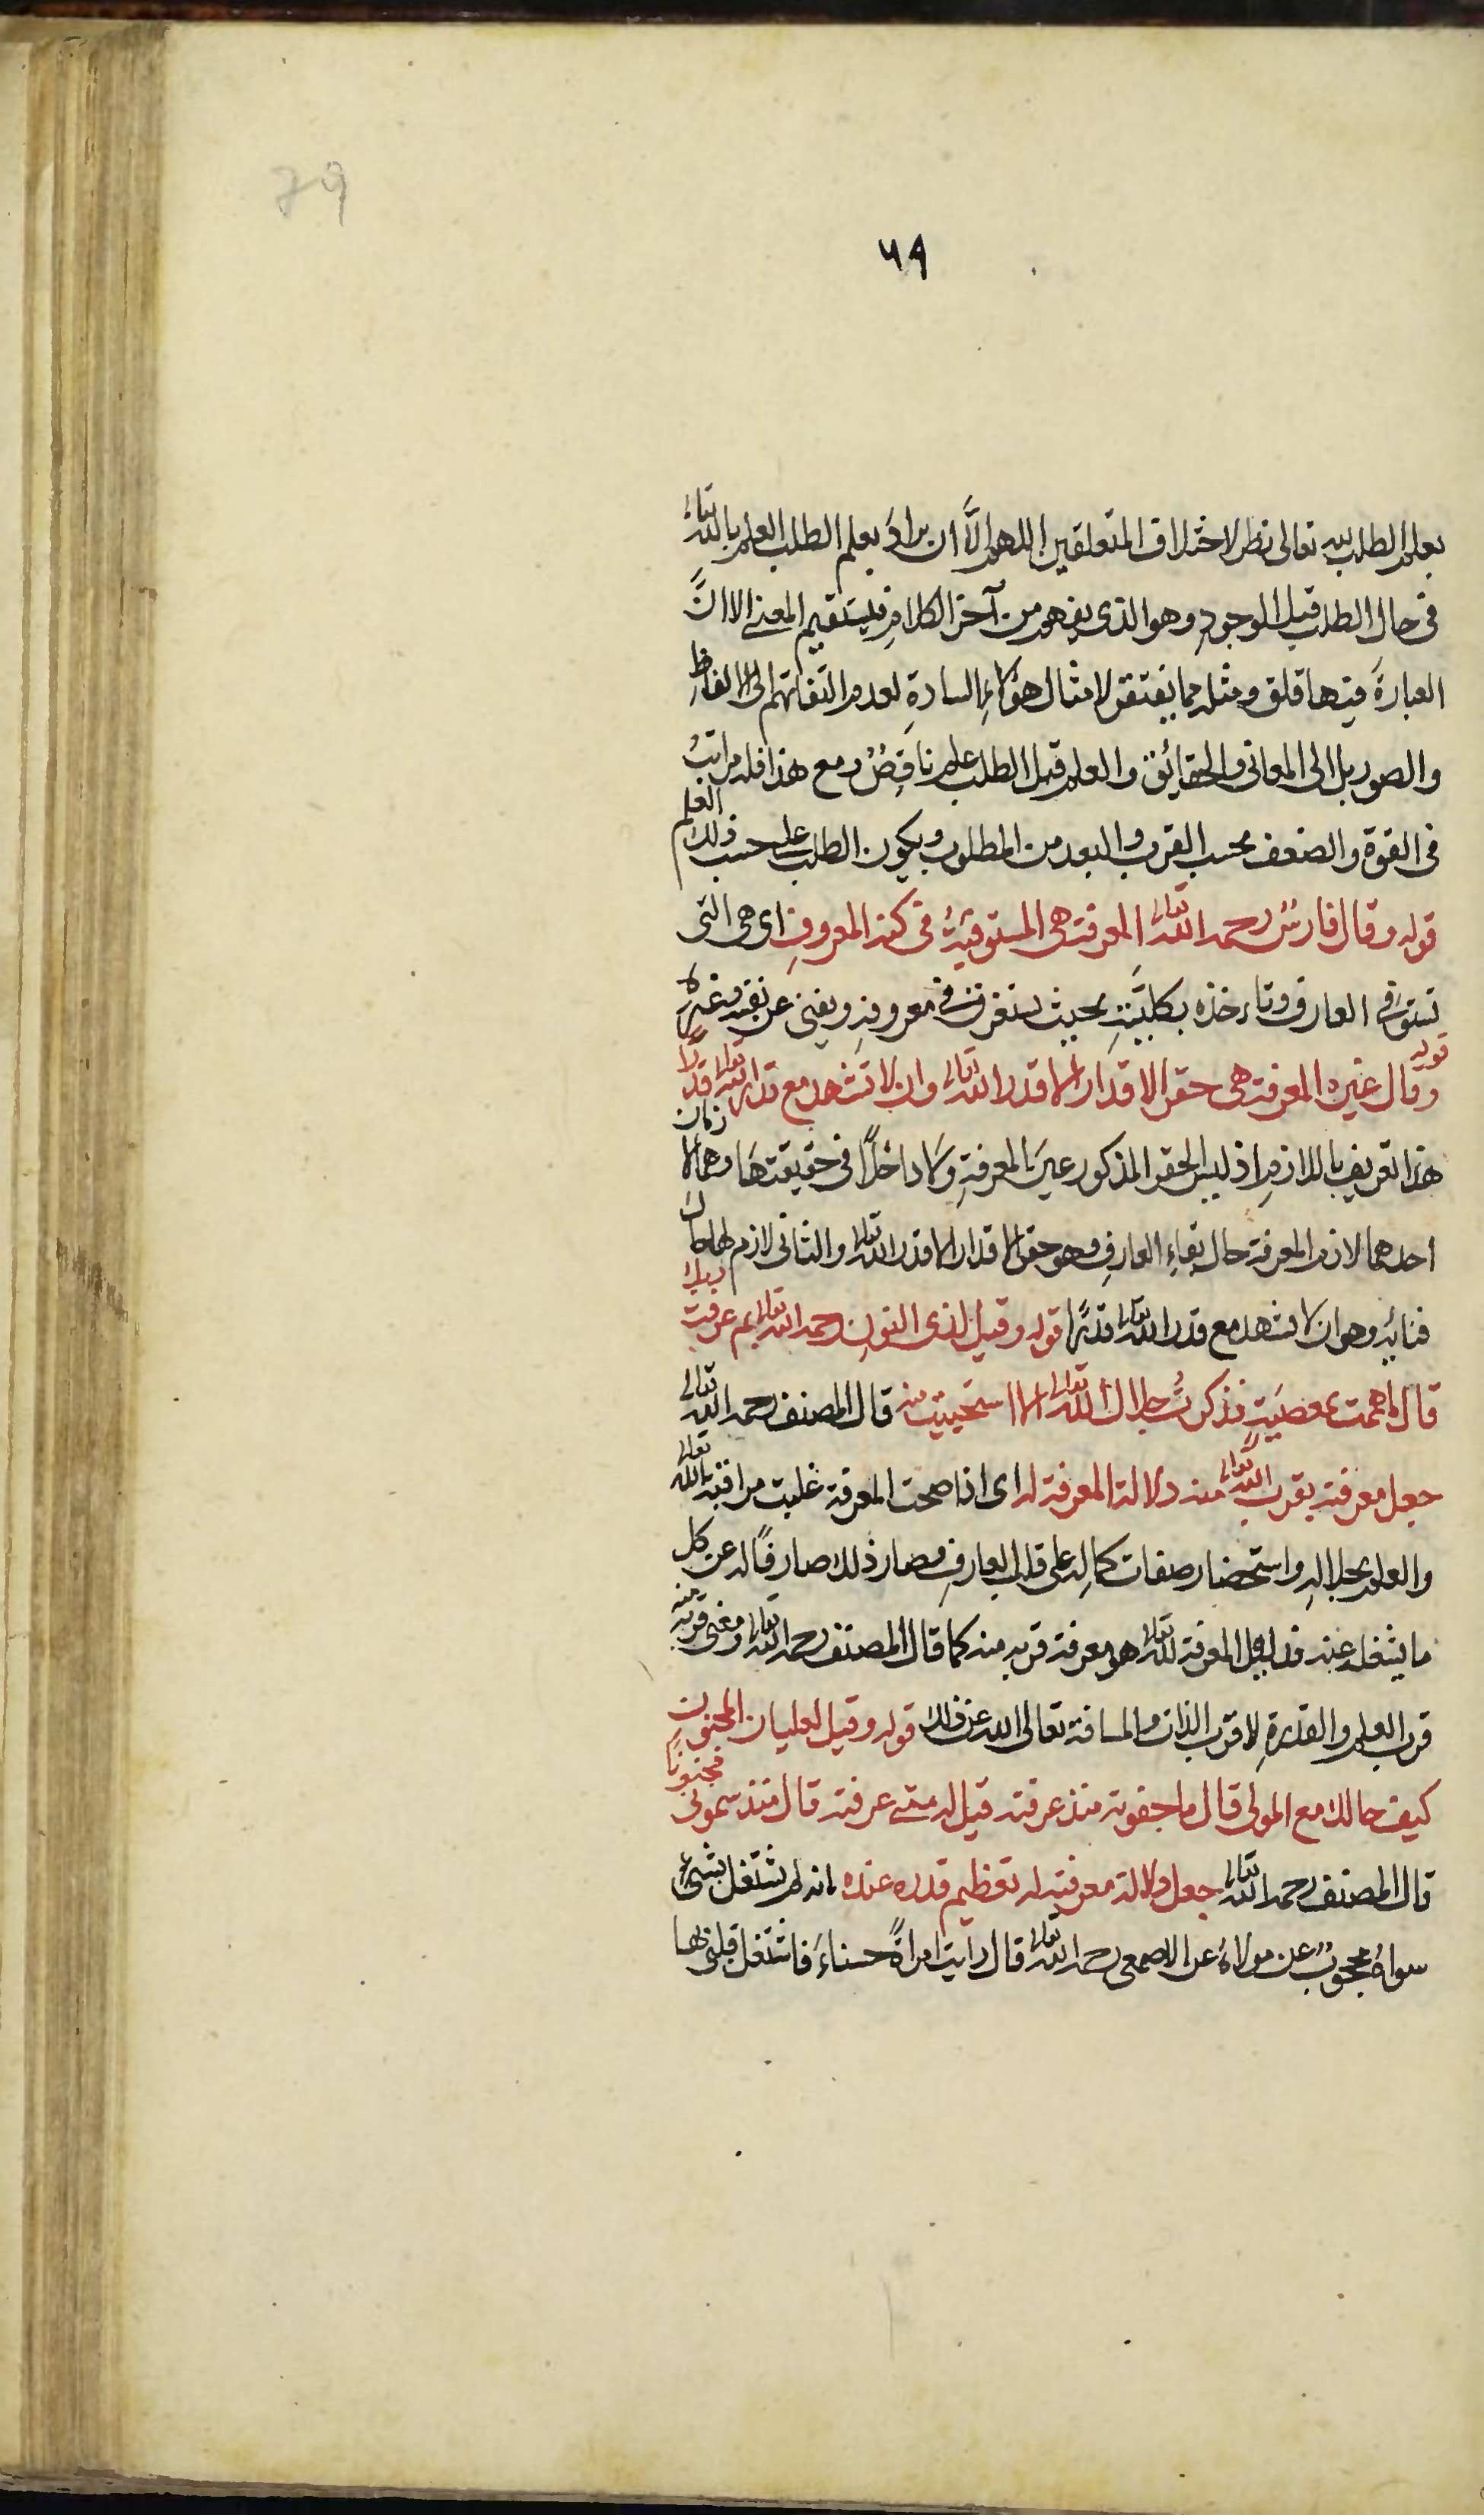 79
٧٩
بعلم الطلب لله تعالى نظر لاختلاف المتعلقين اللهم الّا ان يراد بعلم الطلب العلم بالله تعالى
فى حال الطلب قبل الوجود وهو الذى يفهم من آخر الكلام فيستقيم المعنى الا انّ
العبارة فيها قلق ومثله مما يغتفر لامثال هؤلاءِ السادةِ لعدم التفاتهم الى الالفاظِ
والصور بل الى المعانى والحقائق والعلم قبل الطلب علم ناقِصٌ ومع هذا فله مراتبُ
فى القوة والضعف بحسب القرب والبعد من المطلوب ويكون الطلب على حسب ذلك العلم
قوله وقال فارسٌ رحمه الله تعالى المعرفة هى المستوفيةُ فى كنه المعروفِ اى هى التى
تستوفى العارف وتاءخذه بكليّتهِ بحيث يستغرق فى معروفهِ ويفنى عن نفسه وغيره
قوله وقال غيره المعرفة هى حقر الاقدار الا قدر الله تعالى وان لا تشهد مع قدر الله تعالى قدرًا
هذا تعريف باللازمِ اذ ليس الحقر المذكور عينَ المعرفةِ ولا داخلًا فى حقيقتها وهما لازمان
احدهما لازم المعرفة حال بقاءِ العارفِ وهو حقر الاقدار الا قدر الله تعالى والثانى لازم لها حال
فنائِه وهو ان لا يشهد مع قدر الله تعالى قدرًا قوله وقيل لذى النونِ رحمه الله تعالى بم عرفت ربك
قال ما هممت بمعصيَةٍ فذكرتُ جلال الله تعالى الا استحييت منه قال المصنف رحمه الله تعالى
جعل معرفته بقرب الله تعالى منه دلالة المعرفة له اى اذا صحت المعرفة غلبت مراقبة الله تعالى
والعلم بجلالهِ واستحضار صفات كمالِه على قلب العارفِ فصار ذلك صارفًا له عن كل
ما يشغله عنه فدليل المعرفة لله تعالى هو معرفة قربه منه كما قال المصنف رحمه الله تعالى ومعنى قربه منه
قرب العلم والقدرةِ لا قرب الذات والمسافة تعالى الله عن ذلك قوله وقيل لعليان المجنون
كيف حالك مع المولى قال ما جفوته منذ عرفته قيل له متى عرفته قال منذ سمونى مجنونًا
قال المصنف رحمه الله تعالى جعل دلالة معرفته له تعظيم قدره عنده لانه لم يشتغل بشىءٍ
سواهُ محجوبٌ عن مولاهُ عن الاصمعى رحمه الله تعالى قال رايت امراةً حسناءَ فاشتغل قلبى بها